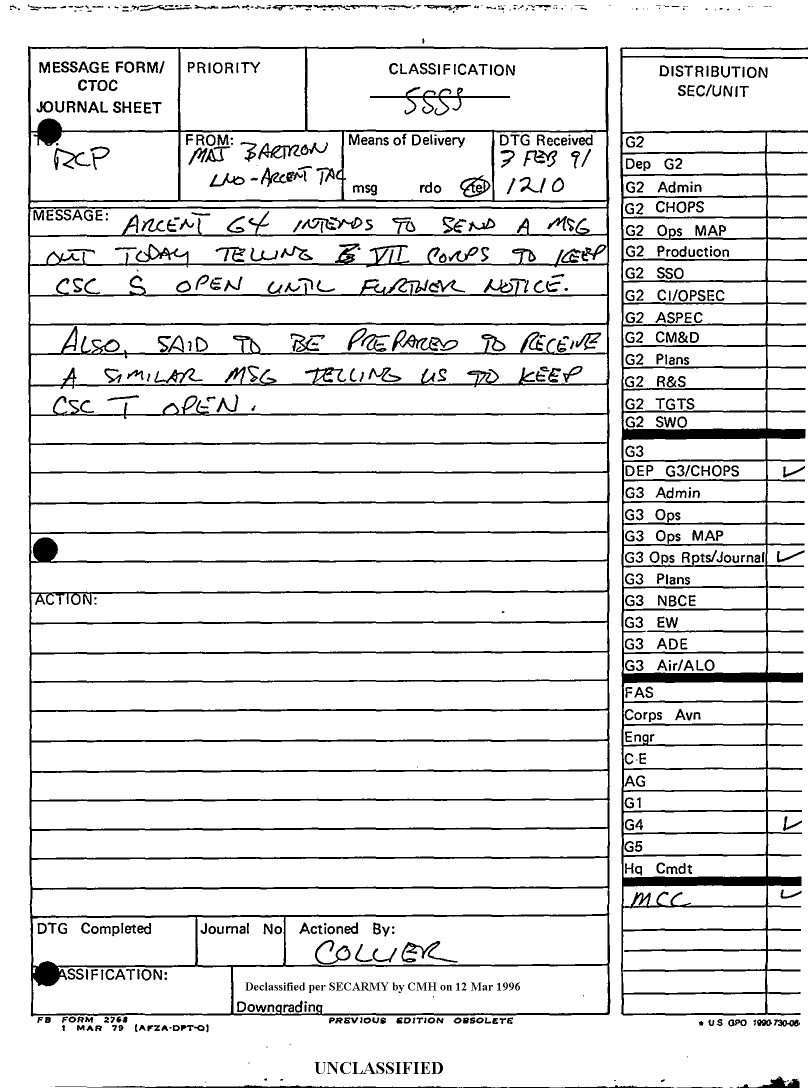 MESSAGE FORM/
CTOC
JOURNAL SHEET
PRIORITY
CLASSIFICATION
SSSS
RCP
FROM:
MAJ BARTRON
LNO-ARCENT TAC
Means of Delivery
msg rdo tel
DTG Received
FEB 91
1210
MESSAGE: ARCENT G4 INTENDS TO SEND A MSG
OUT TODAY TELLING VII CORPS TO KEEP
CSC S OPEN UNTIL FURTHER NOTICE.
ALSO, SAID TO BE PREPARED TO RECEIVE
A SIMILAR MSG TELLING US TO KEEP
CSC T OPEN.
ACTION:
DTG Completed
Journal No
Actioned By:
COLLIER
ASSIFICATION:
Declassified per SECARMY by CMH on 12 Mar 1996
Downgrading
FB FORM 2768
1 MAR 79 (AFZA-DPT-O)
PREVIOUS EDITION OBSOLETE
DISTRIBUTION
SEC/UNIT
G2
Dep G2
G2 Admin
G2 CHOPS
G2 Ops MAP
G2 Production
G2 SSO
G2 CI/OPSEC
G2 ASPEC
G2 CM&D
G2 Plans
G2 R&S
G2 TGTS
G2 SWO
G3
DEP G3/CHOPS
G3 Admin
G3 Ops
G3 Ops MAP
G3 Ops Rpts/Journal
G3 Plans
G3 NBCE
G3 EW
G3 ADE
G3 Air/ALO
FAS
Corps Avn
Engr
C-E
AG
G1
G4
G5
Hq Cmdt
MCC
* US GPO 1990-730-06
UNCLASSIFIED